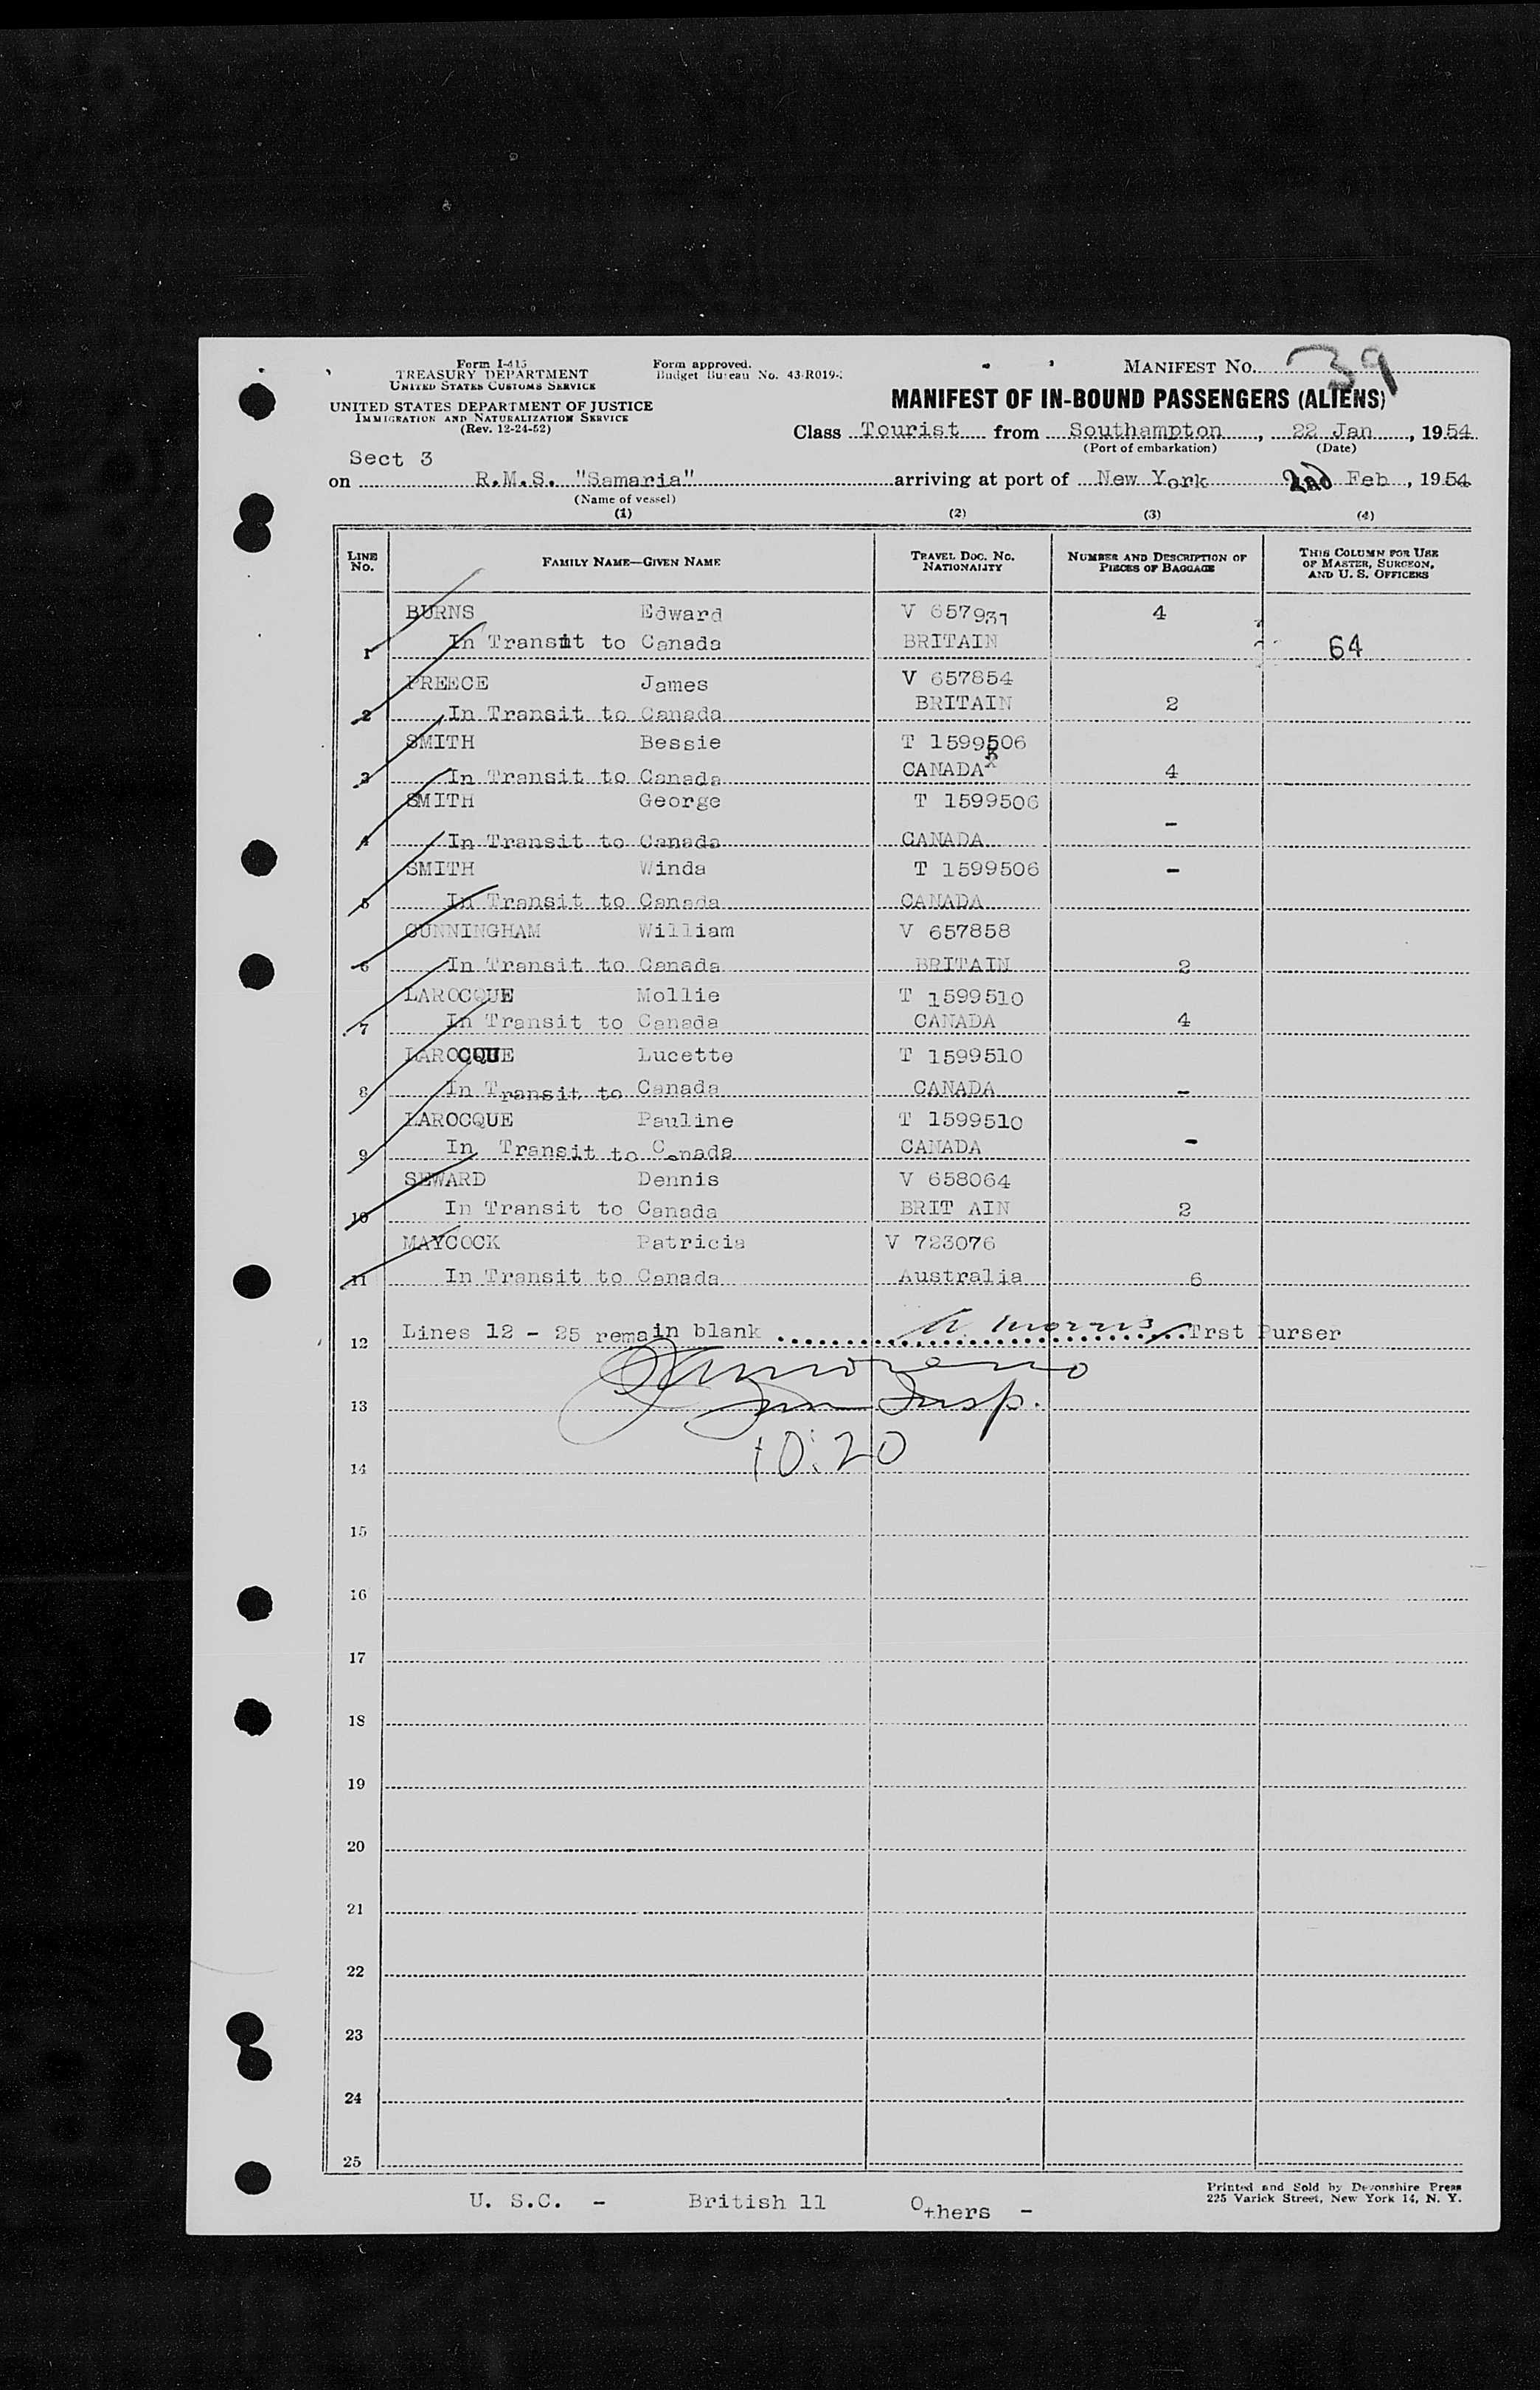 Form I-415
TREASURY DEPARTMENT
UNITED STATES CUSTOMS SERVICE
Form approved.
Budget Bureau No. 43-R019-
MANIFEST No. 39
UNITED STATES DEPARTMENT OF JUSTICE
IMMIGRATION AND NATURALIZATION SERVICE
(Rev. 12-24-52)
MANIFEST OF IN-BOUND PASSENGERS (ALIENS)
Class Tourist from Southampton, 22 Jan, 1954
(Port of embarkation) (Date)
Sect 3
on R.M.S. "Samaria" arriving at port of New York 2nd Feb, 1954
(Name of vessel)
(1) (2) (3) (4)
LINE No. FAMILY NAME—GIVEN NAME TRAVEL DOC. NO. NATIONALITY NUMBER AND DESCRIPTION OF PIECES OF BAGGAGE THIS COLUMN FOR USE OF MASTER, SURGEON, AND U. S. OFFICERS
BURNS Edward V 657931 4
1 In Transit to Canada BRITAIN 64
PREECE James V 657854
2 In Transit to Canada BRITAIN 2
SMITH Bessie T 1599506
3 In Transit to Canada CANADA 4
SMITH George T 1599506
4 In Transit to Canada CANADA -
SMITH Winda T 1599506 -
5 In Transit to Canada CANADA
CUNNINGHAM William V 657858
6 In Transit to Canada BRITAIN 2
LAROCQUE Mollie T 1599510
7 In Transit to Canada CANADA 4
LAROCQUE Lucette T 1599510
8 In Transit to Canada CANADA -
LAROCQUE Pauline T 1599510
9 In Transit to Canada CANADA -
SEWARD Dennis V 658064
10 In Transit to Canada BRIT AIN 2
MAYCOCK Patricia V 723076
11 In Transit to Canada Australia 6
12 Lines 12 - 25 remain blank Morris Trst Purser
13 Insp.
10:20
14
15
16
17
18
19
20
21
22
23
24
25
U. S.C. - British 11 Others -
Printed and Sold by Devonshire Press
225 Varick Street, New York 14, N. Y.